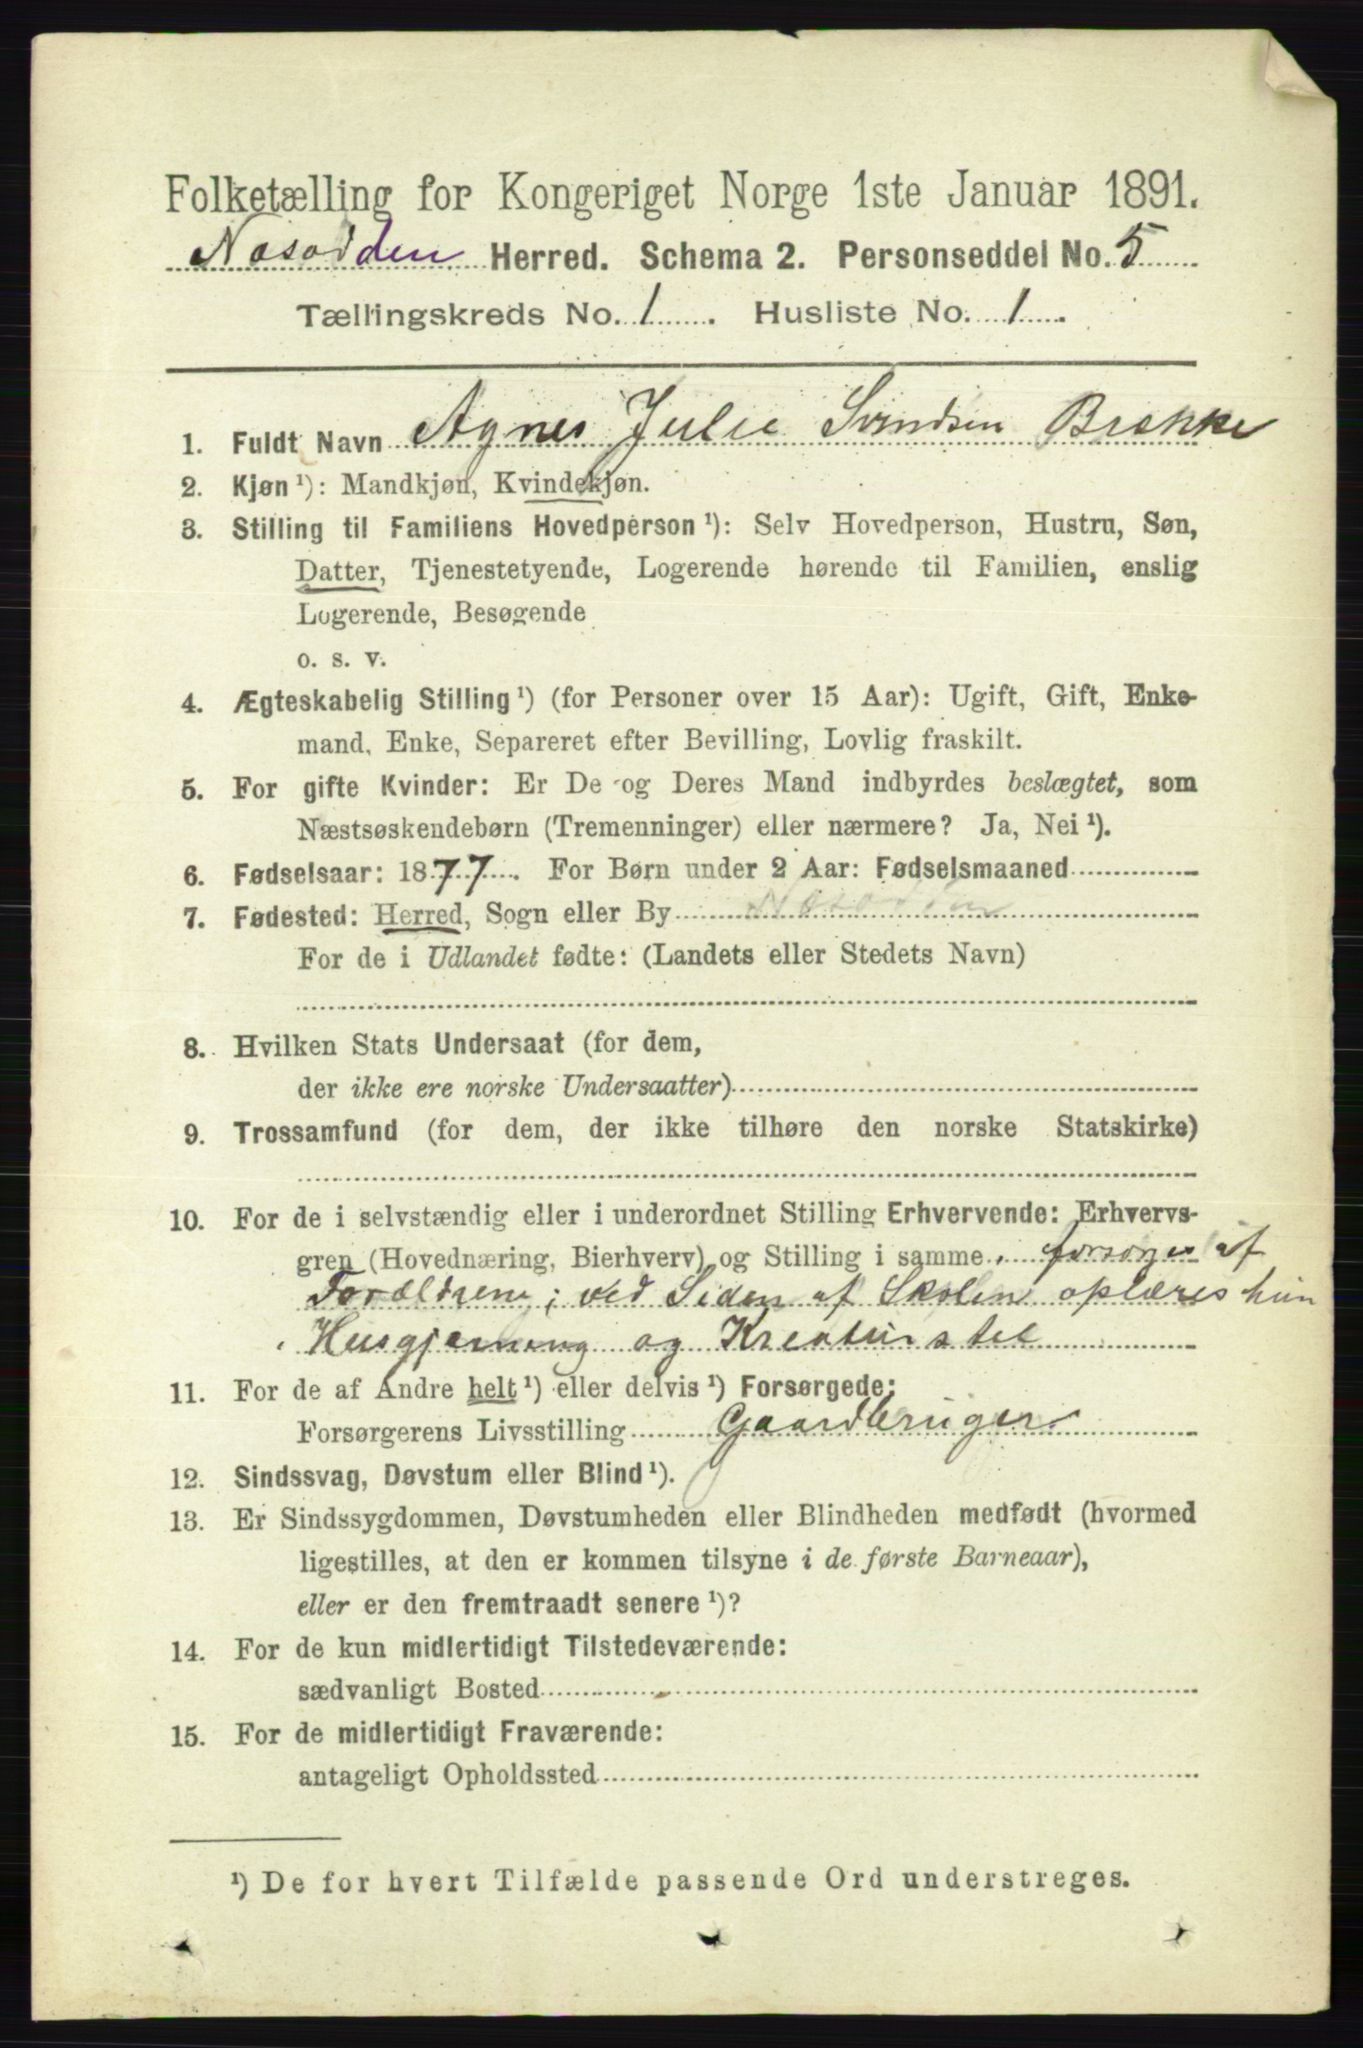 Folketælling for Kongeriget Norge 1ste Januar 1891.
Næsodden Herred. Schema 2. Personseddel No. 5
Tællingskreds No. 1. Husliste No. 1.
1. Fuldt Navn Agnes Julie Svendsen Brekke
2. Kjøn ¹): Mandkjøn, Kvindekjøn.
3. Stilling til Familiens Hovedperson ¹): Selv Hovedperson, Hustru, Søn,
Datter, Tjenestetyende, Logerende hørende til Familien, enslig
Logerende, Besøgende
o. s. v.
4. Ægteskabelig Stilling ¹) (for Personer over 15 Aar): Ugift, Gift, Enke-
mand, Enke, Separeret efter Bevilling, Lovlig fraskilt.
5. For gifte Kvinder: Er De og Deres Mand indbyrdes beslægtet, som
Næstsøskendebørn (Tremenninger) eller nærmere? Ja, Nei ¹).
6. Fødselsaar: 1877. For Børn under 2 Aar: Fødselsmaaned
7. Fødested: Herred, Sogn eller By Næsodden
For de i Udlandet fødte: (Landets eller Stedets Navn)
8. Hvilken Stats Undersaat (for dem,
der ikke ere norske Undersaatter)
9. Trossamfund (for dem, der ikke tilhøre den norske Statskirke)
10. For de i selvstændig eller i underordnet Stilling Erhvervende: Erhvervs-
gren (Hovednæring, Bierhverv) og Stilling i samme forsørges af
Forældrene; ved Siden af Skolen oplæres hun
i Husgjerning og Kreaturstel
11. For de af Andre helt ¹) eller delvis ¹) Forsørgede:
Forsørgerens Livsstilling Gaardbruger
12. Sindssvag, Døvstum eller Blind ¹).
13. Er Sindssygdommen, Døvstumheden eller Blindheden medfødt (hvormed
ligestilles, at den er kommen tilsyne i de første Barneaar),
eller er den fremtraadt senere ¹)?
14. For de kun midlertidigt Tilstedeværende:
sædvanligt Bosted
15. For de midlertidigt Fraværende:
antageligt Opholdssted
¹) De for hvert Tilfælde passende Ord understreges.